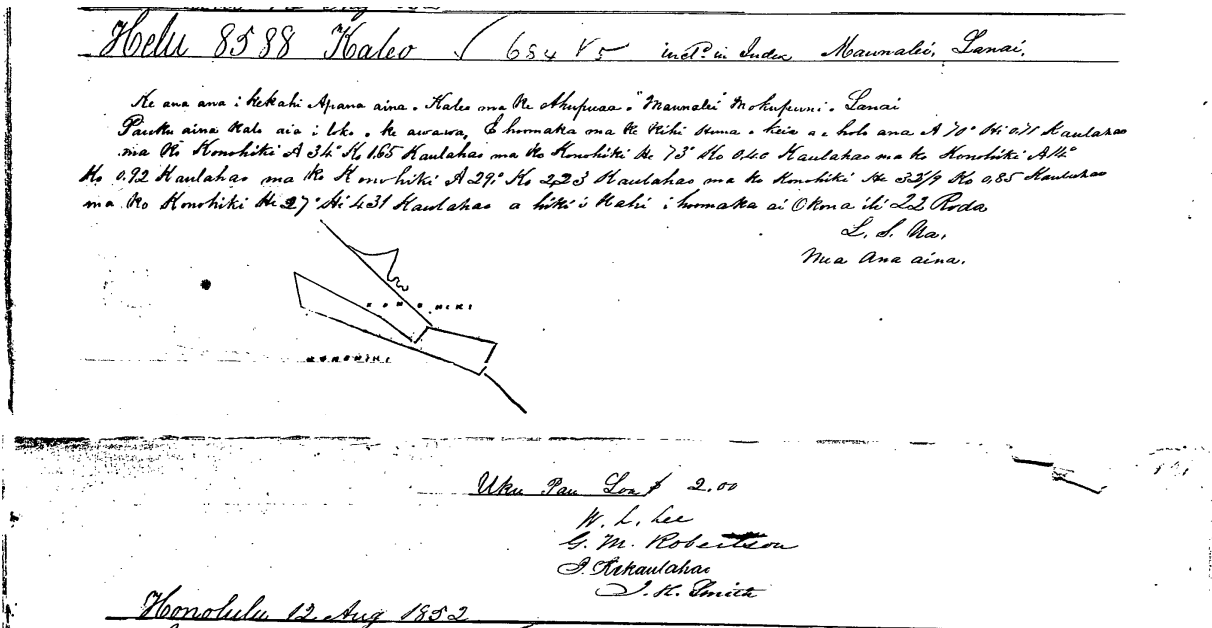 Helu 8588 Kaleo 654 V 5 incl? in Index Maunalei, Lanai.
Ke ana ana i kekahi Apana aina o Kaleo ma ke Ahupuaa o "Maunalei" Mokupuni o Lanai
Pauku aina Kalo aia i loko o ke awawa, E hoomaka ma ke Kihi Huna o keia a e holo ana A 70° Hi 0.71 Kaulahao
ma ko Konohiki A 34° Ko 1.65 Kaulahao ma ko Konohiki He 73° Ko 0.40 Kaulahao ma ko Konohiki A 14°
Ko 0.92 Kaulahao ma ko Konohiki A 29° Ko 2.23 Kaulahao ma ko Konohiki He Ko 0.85 Kaulahao
ma ko Konohiki He 27° Hi 4.31 Kaulahao a hiki i kahi i hoomaka ai Okona ili 22 Roda
L. S. Ua.
Mea Ana aina.
KONOHIKI
KONOHIKI
Uku Pau Loa $ 2.00
W. L. Lee
G. M. Robertson
J. Kekaulahao
J. H. Smith
Honolulu 12 Aug 1852